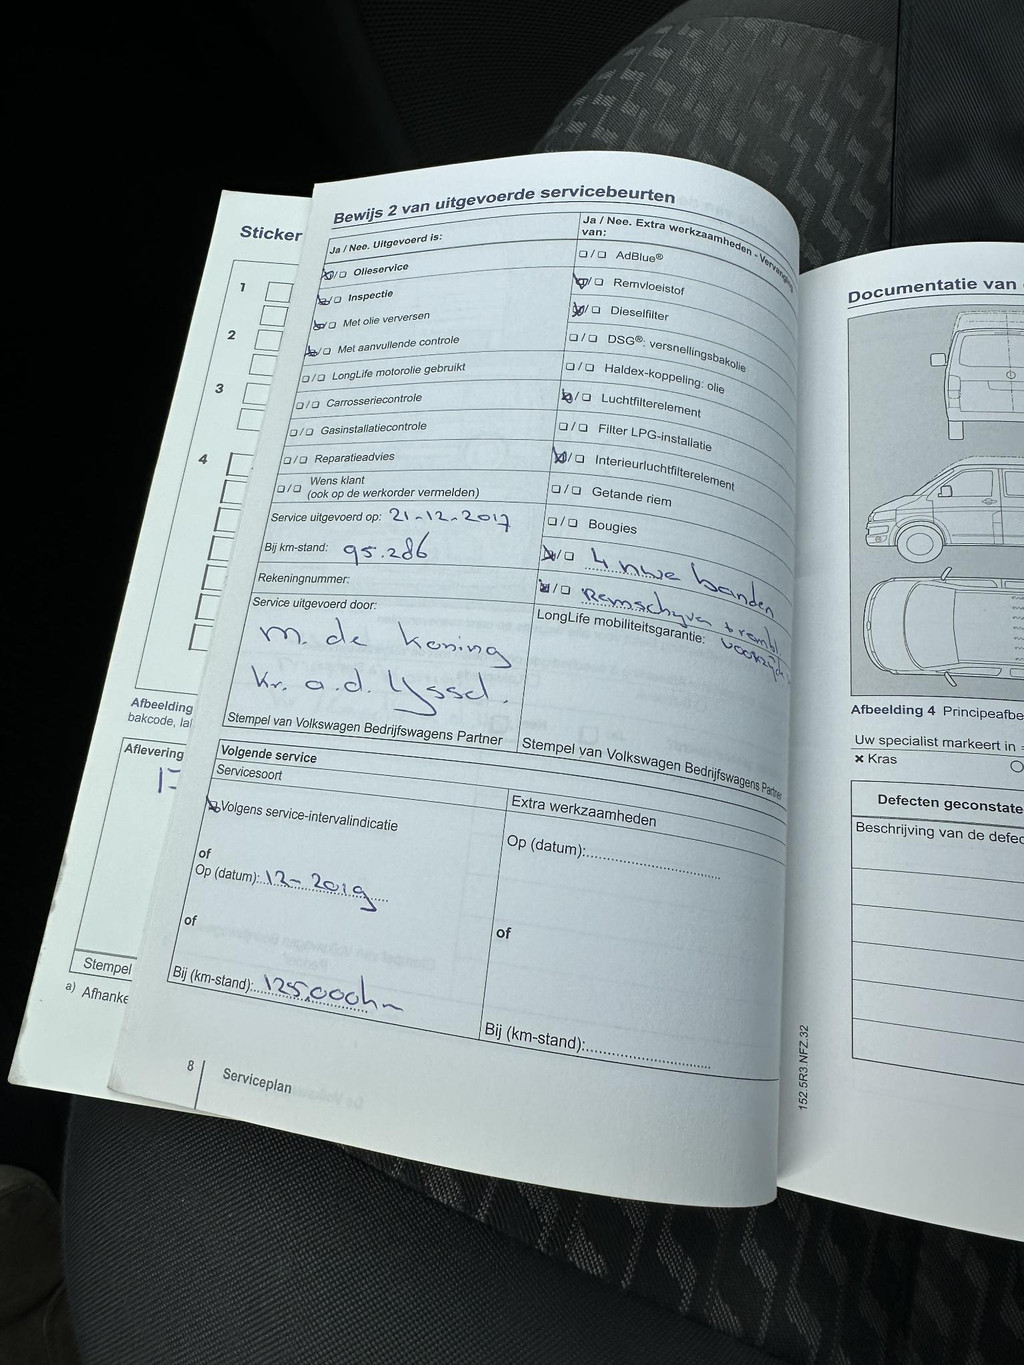 Sticker
1
2
3
4
Afbeelding
bakcode, la
Aflevering
Stempel
a) Afhanke
Bewijs 2 van uitgevoerde servicebeurten
Ja / Nee. Uitgevoerd is:
Olieservice
Inspectie
Met olie verversen
Met aanvullende controle
LongLife motorolie gebruikt
Carrosseriecontrole
Gasinstallatiecontrole
Reparatieadvies
Wens klant
(ook op de werkorder vermelden)
Service uitgevoerd op: 21-12-2017
Bij km-stand: 95.286
Rekeningnummer:
Service uitgevoerd door:
M. de Koning
Kr. a.d. IJssel.
Stempel van Volkswagen Bedrijfswagens Partner
Ja / Nee. Extra werkzaamheden - Vervanging
van:
AdBlue®
Remvloeistof
Dieselfilter
DSG®: versnellingsbakolie
Haldex-koppeling: olie
Luchtfilterelement
Filter LPG-installatie
Interieurluchtfilterelement
Getande riem
Bougies
4 nwe banden
Remschyven + rembl.
LongLife mobiliteitsgarantie: voorzijde
Stempel van Volkswagen Bedrijfswagens Partner
Volgende service
Servicesoort
Volgens service-intervalindicatie
of
Op (datum): 12-2019
of
Bij (km-stand): 125.000km
Extra werkzaamheden
Op (datum):
of
Bij (km-stand):
8
Serviceplan
152.5R3.NFZ.32
Documentatie van
Afbeelding 4 Principeafbe
Uw specialist markeert in
× Kras
Defecten geconstate
Beschrijving van de defec